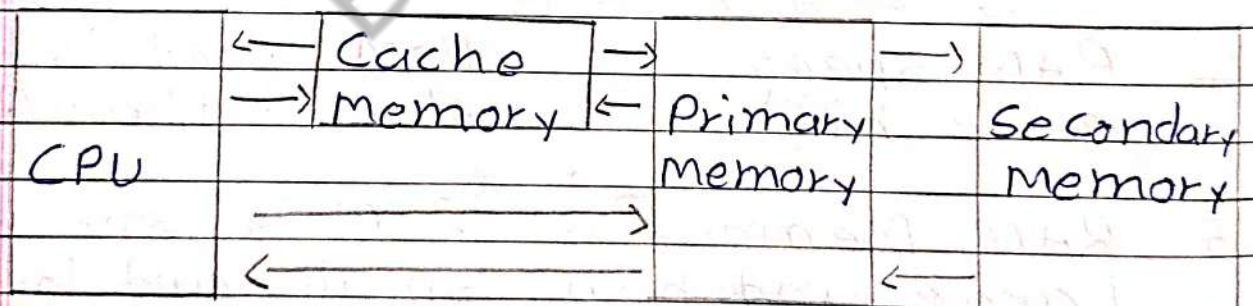 CPU
Cache
Memory
Primary
Memory
Secondary
Memory